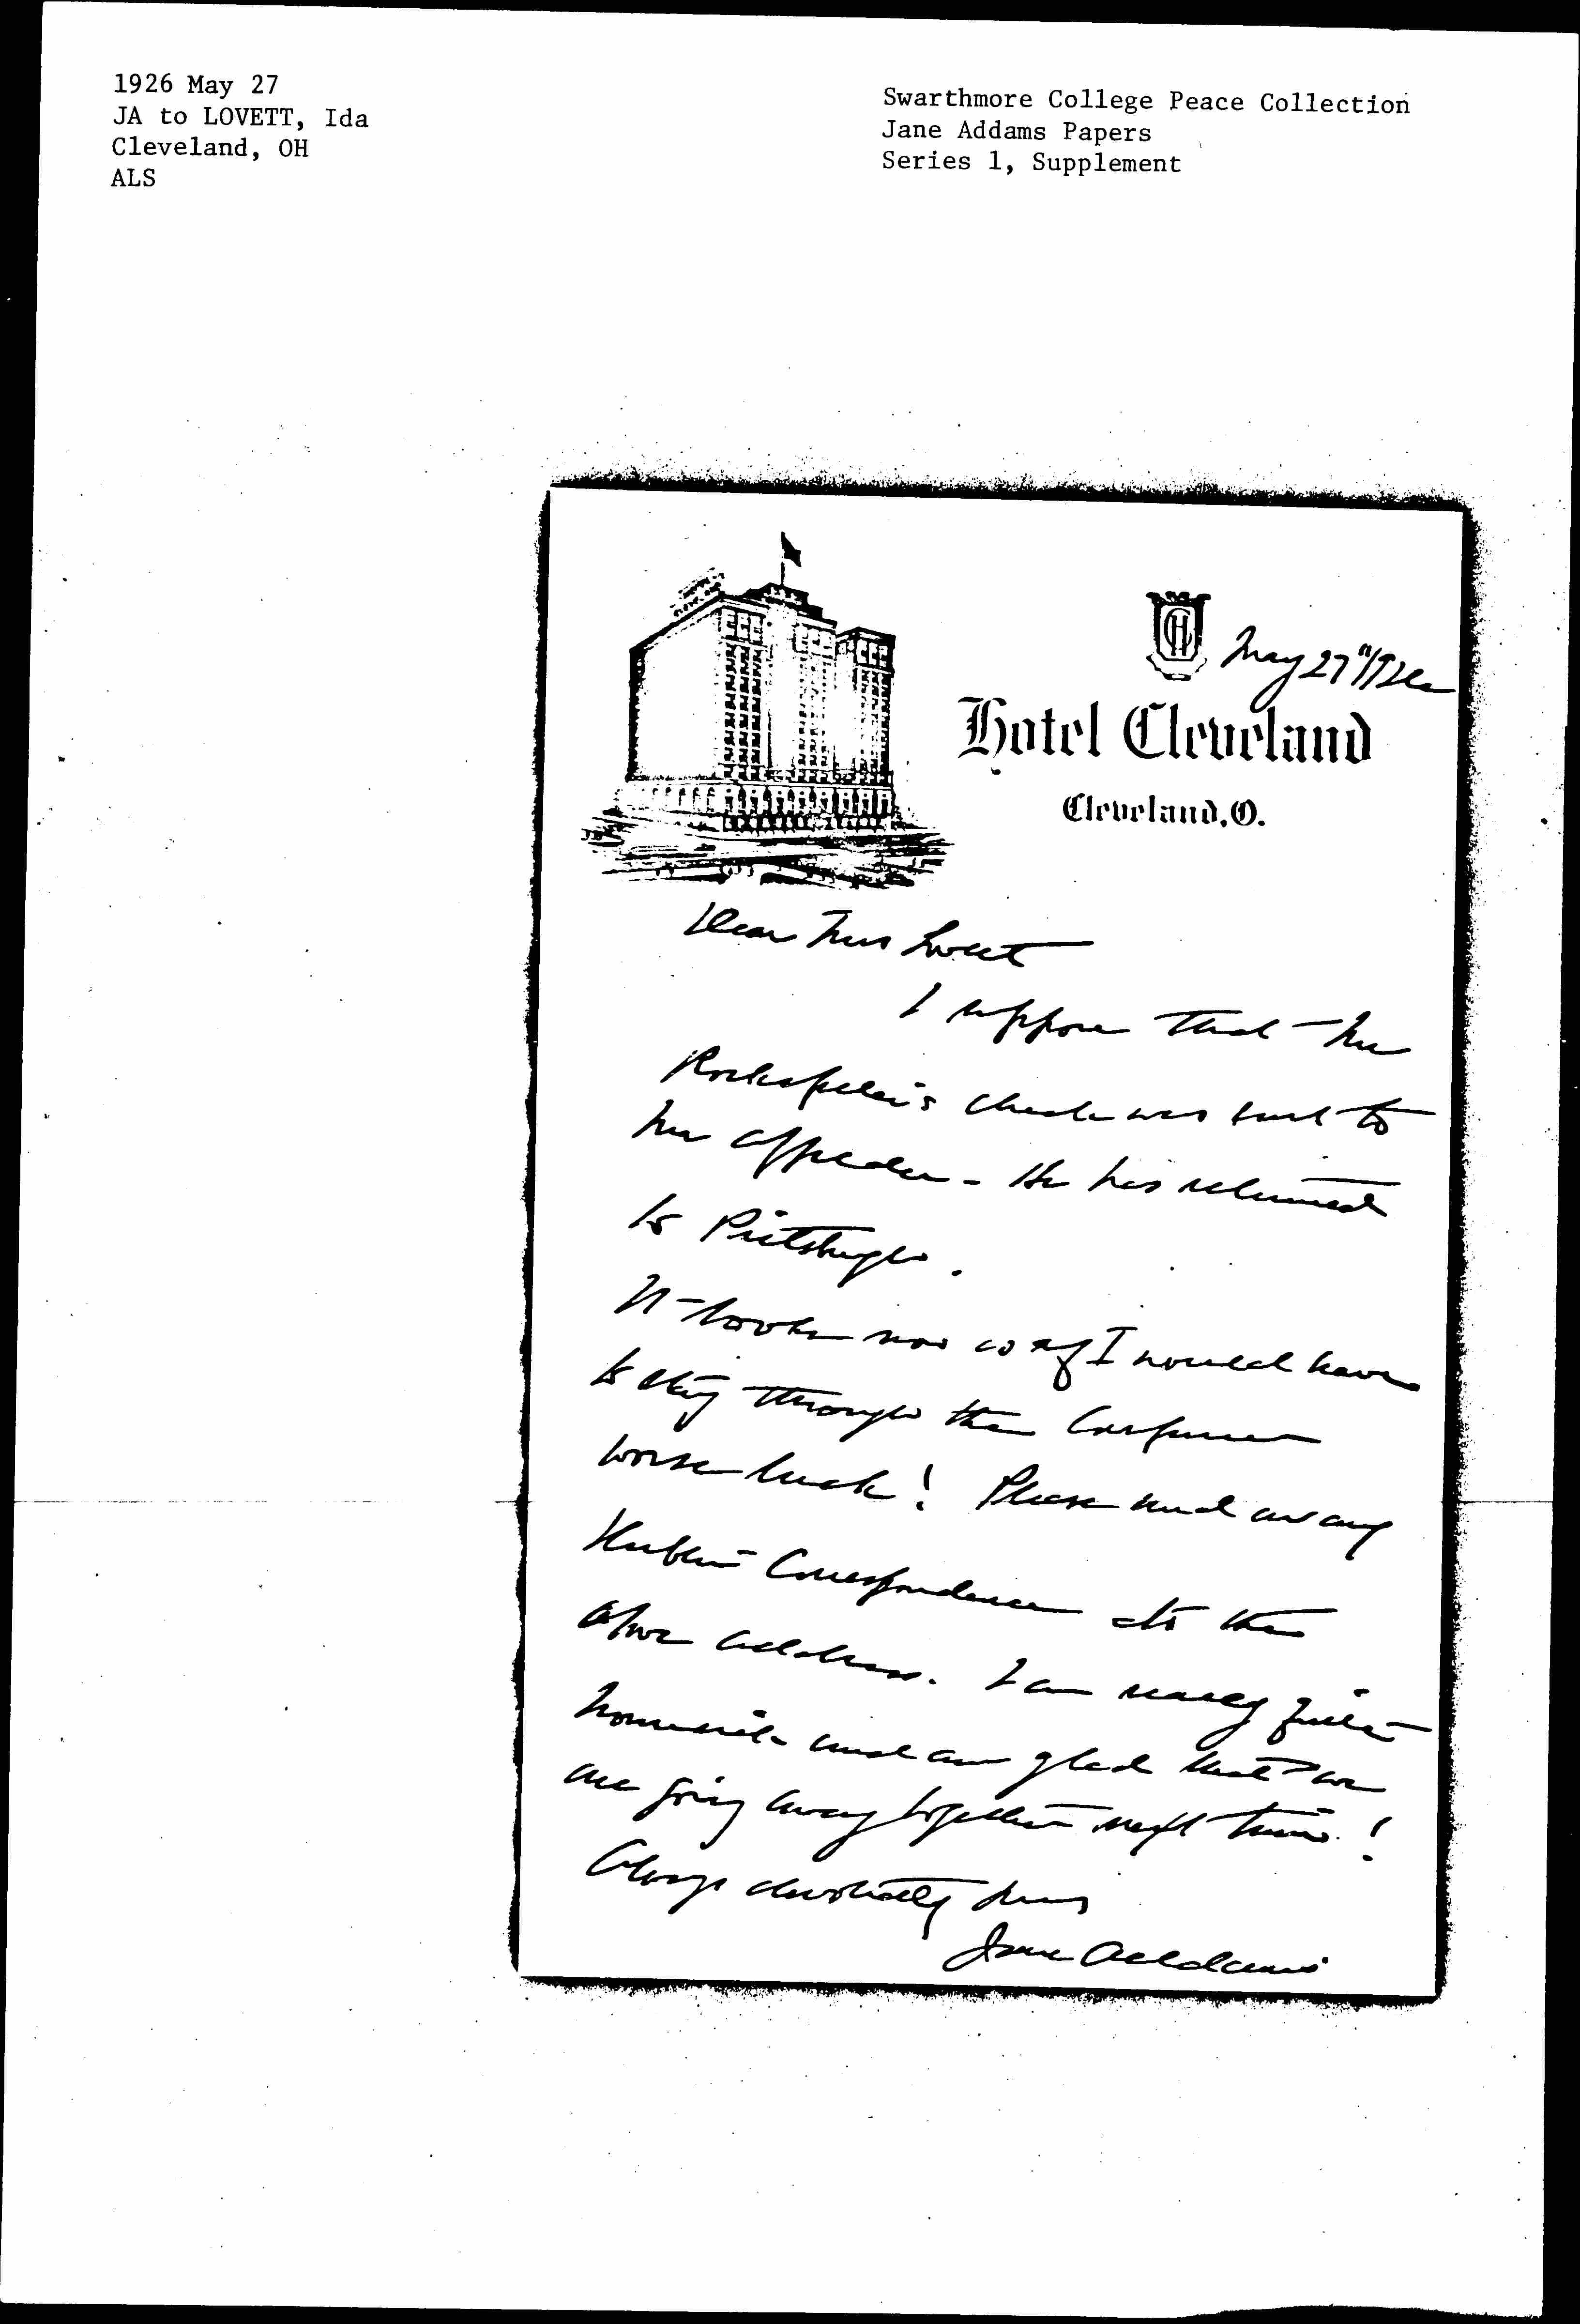 1926 May 27
JA to LOVETT, Ida
Cleveland, OH
ALS
Swarthmore College Peace Collection
Jane Addams Papers
Series 1, Supplement
May 27"/926
Hotel Cleveland
Cleveland, O.
Dear Mrs Lovett
I suppose that Mr
check was sent to
He has returned
to Pittsburgh.
It looks now as if I would have
to stay through the Conference
worse luck! Please send on any
Correspondence to the
above address. I am really quite
homesick and am glad that we
are going away together next time!
Always devotedly yours
Jane Addams